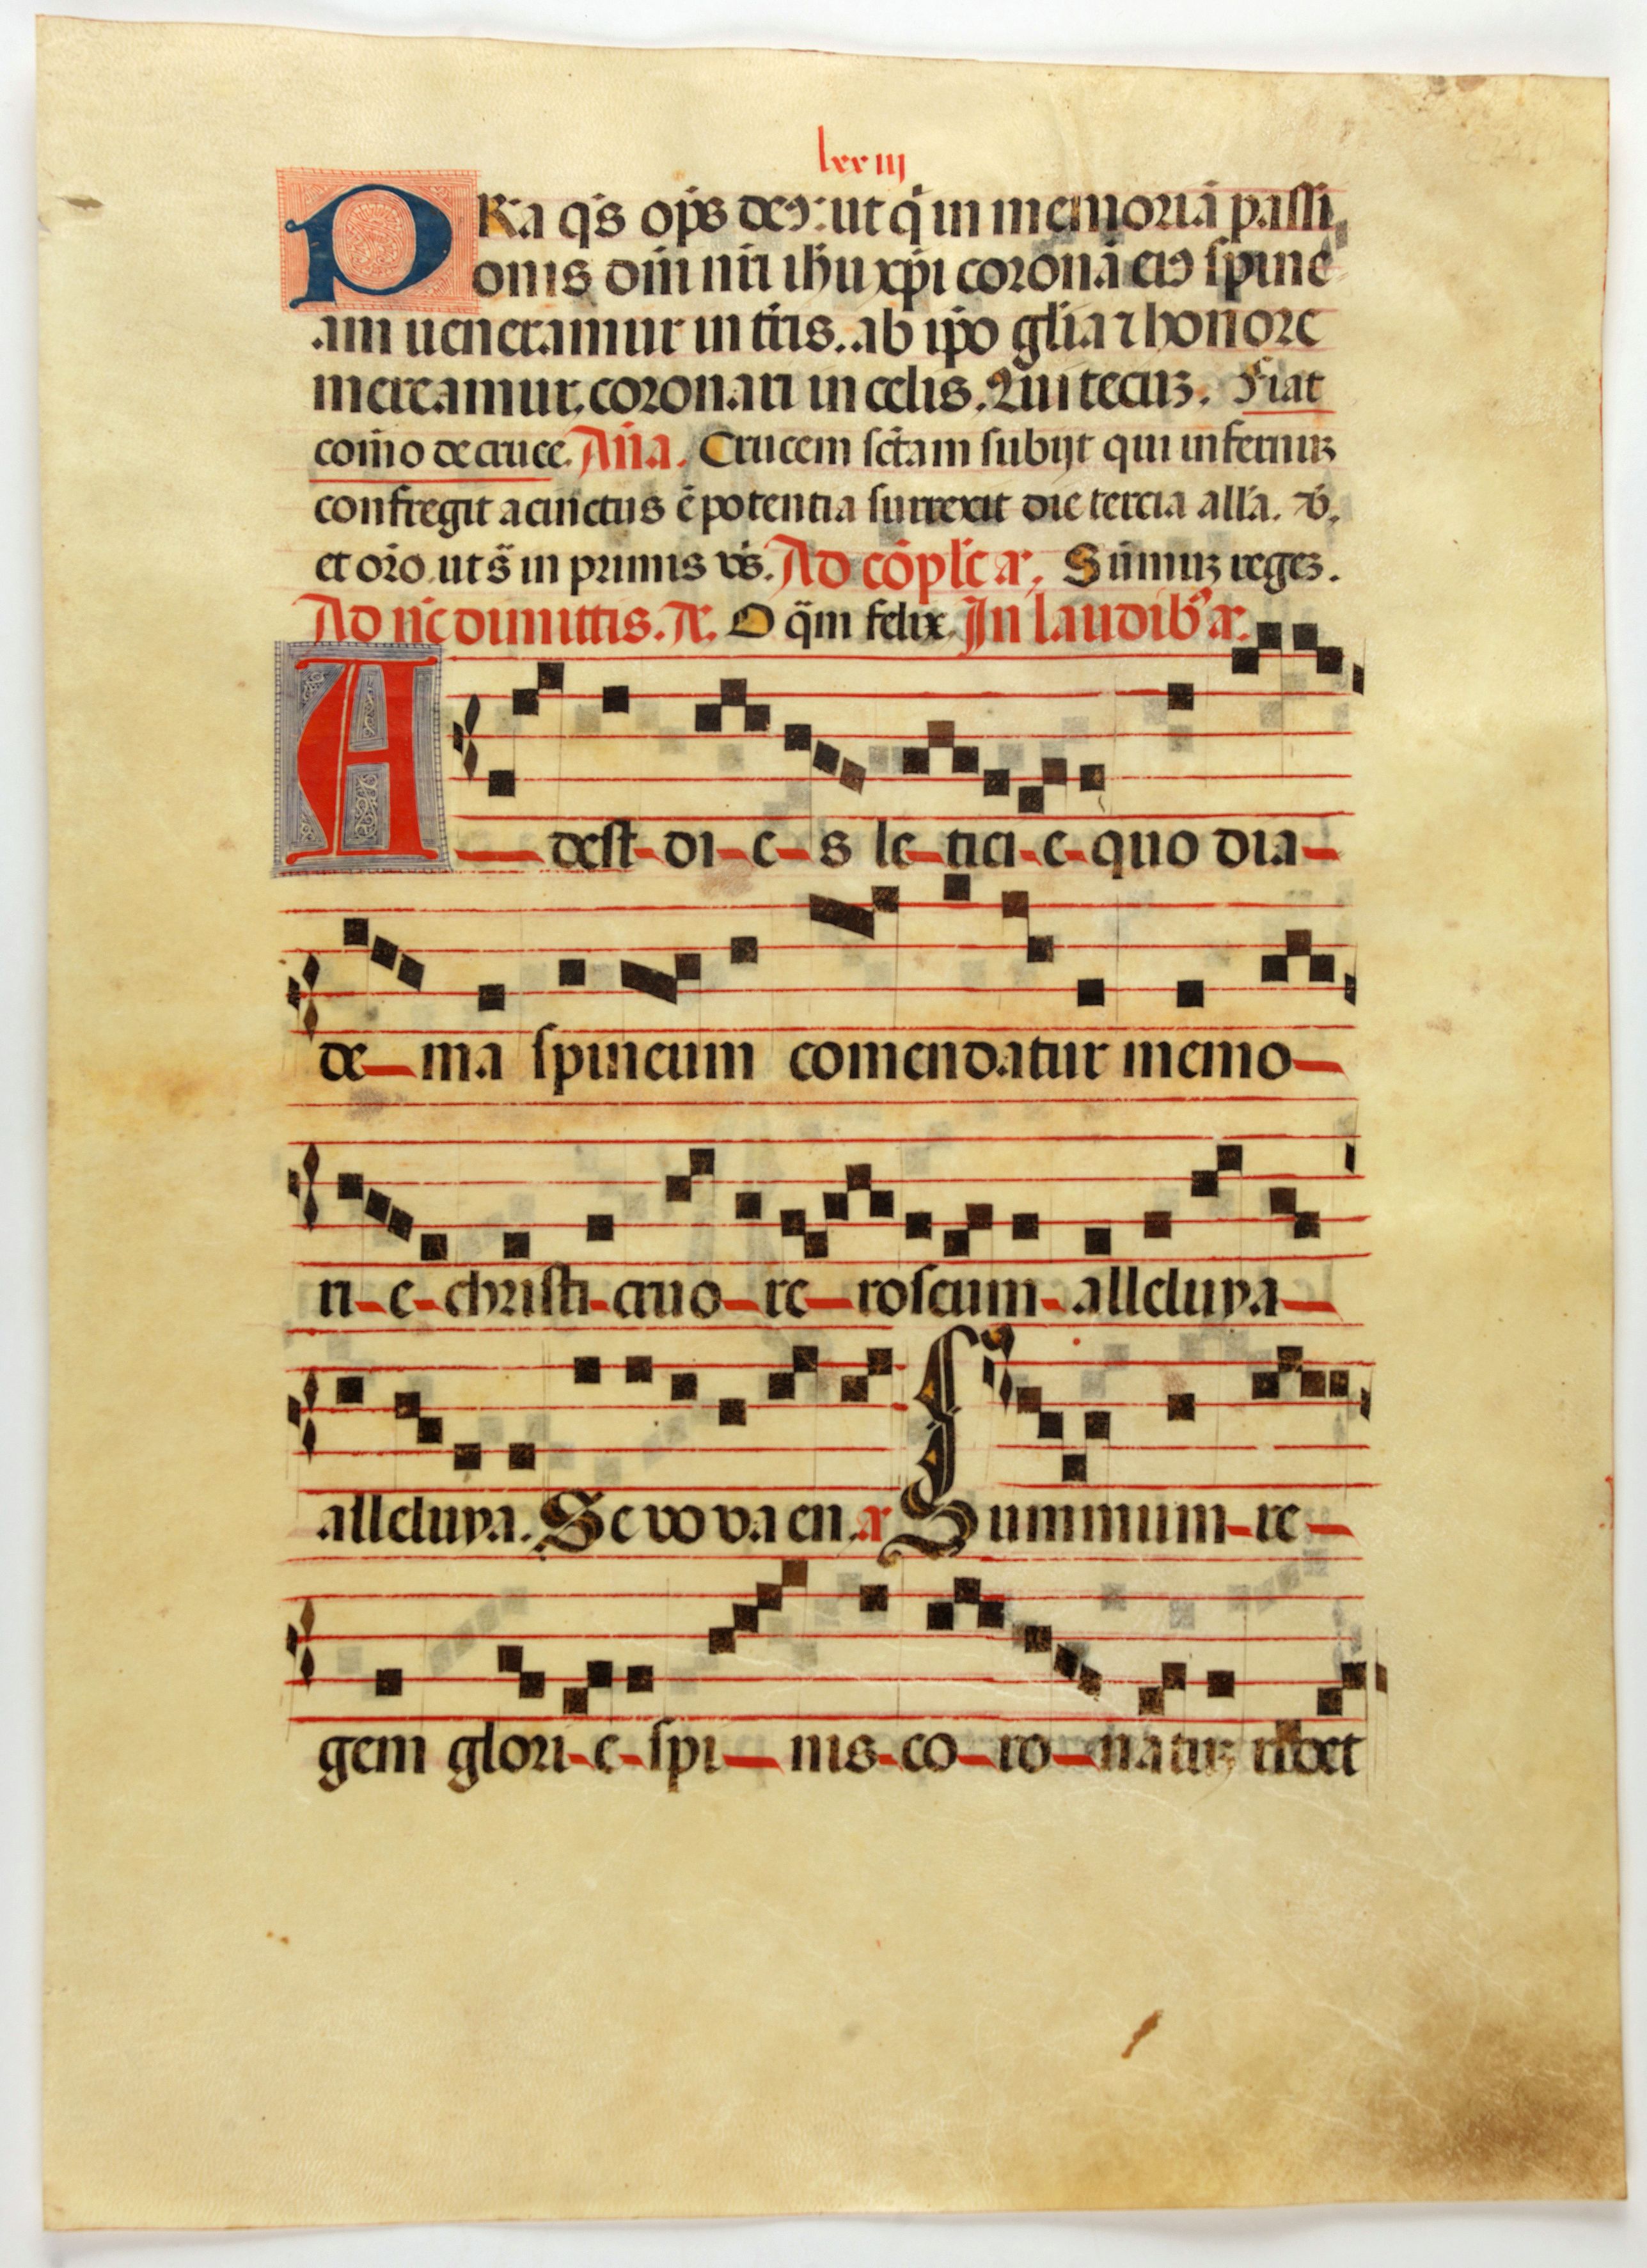 lxxiij
PRa q̄s op̄s deꝰ: ut q̇ in memoriā passi
onis dn̄i nr̄i ih̄u xp̄i coronā eiꝰ spine
am ueneramur in tr̄is. ab ip̄o gl̄ia ⁊ honore
mereamur. coronari in celis. Qui tecuꝫ. Fiat
com̄o de cruce. Añā. Crucem sc̄tam subijt qui infernuꝫ
confregit acinctus ē potentia surrexit die tercia all̄a. v̄.
et or̄o ut s̄ in primis vs̄. Ad cōpl̄ꝫ añ. Sūmuꝫ regeꝫ.
Ad nc̄ dimittis. Añ. O q̄m felix. In laudibꝰ añ.
A-dest-di-e-s le-tici-e-quo dia-
de-ma spineum comendatur memo-
ri-e-christi-cruo-re-roseum-alleluya-
alleluya. Se vo va en. añ Summum-re-
gem glori-e-spi-nis-co-ro-natuꝫ ridet